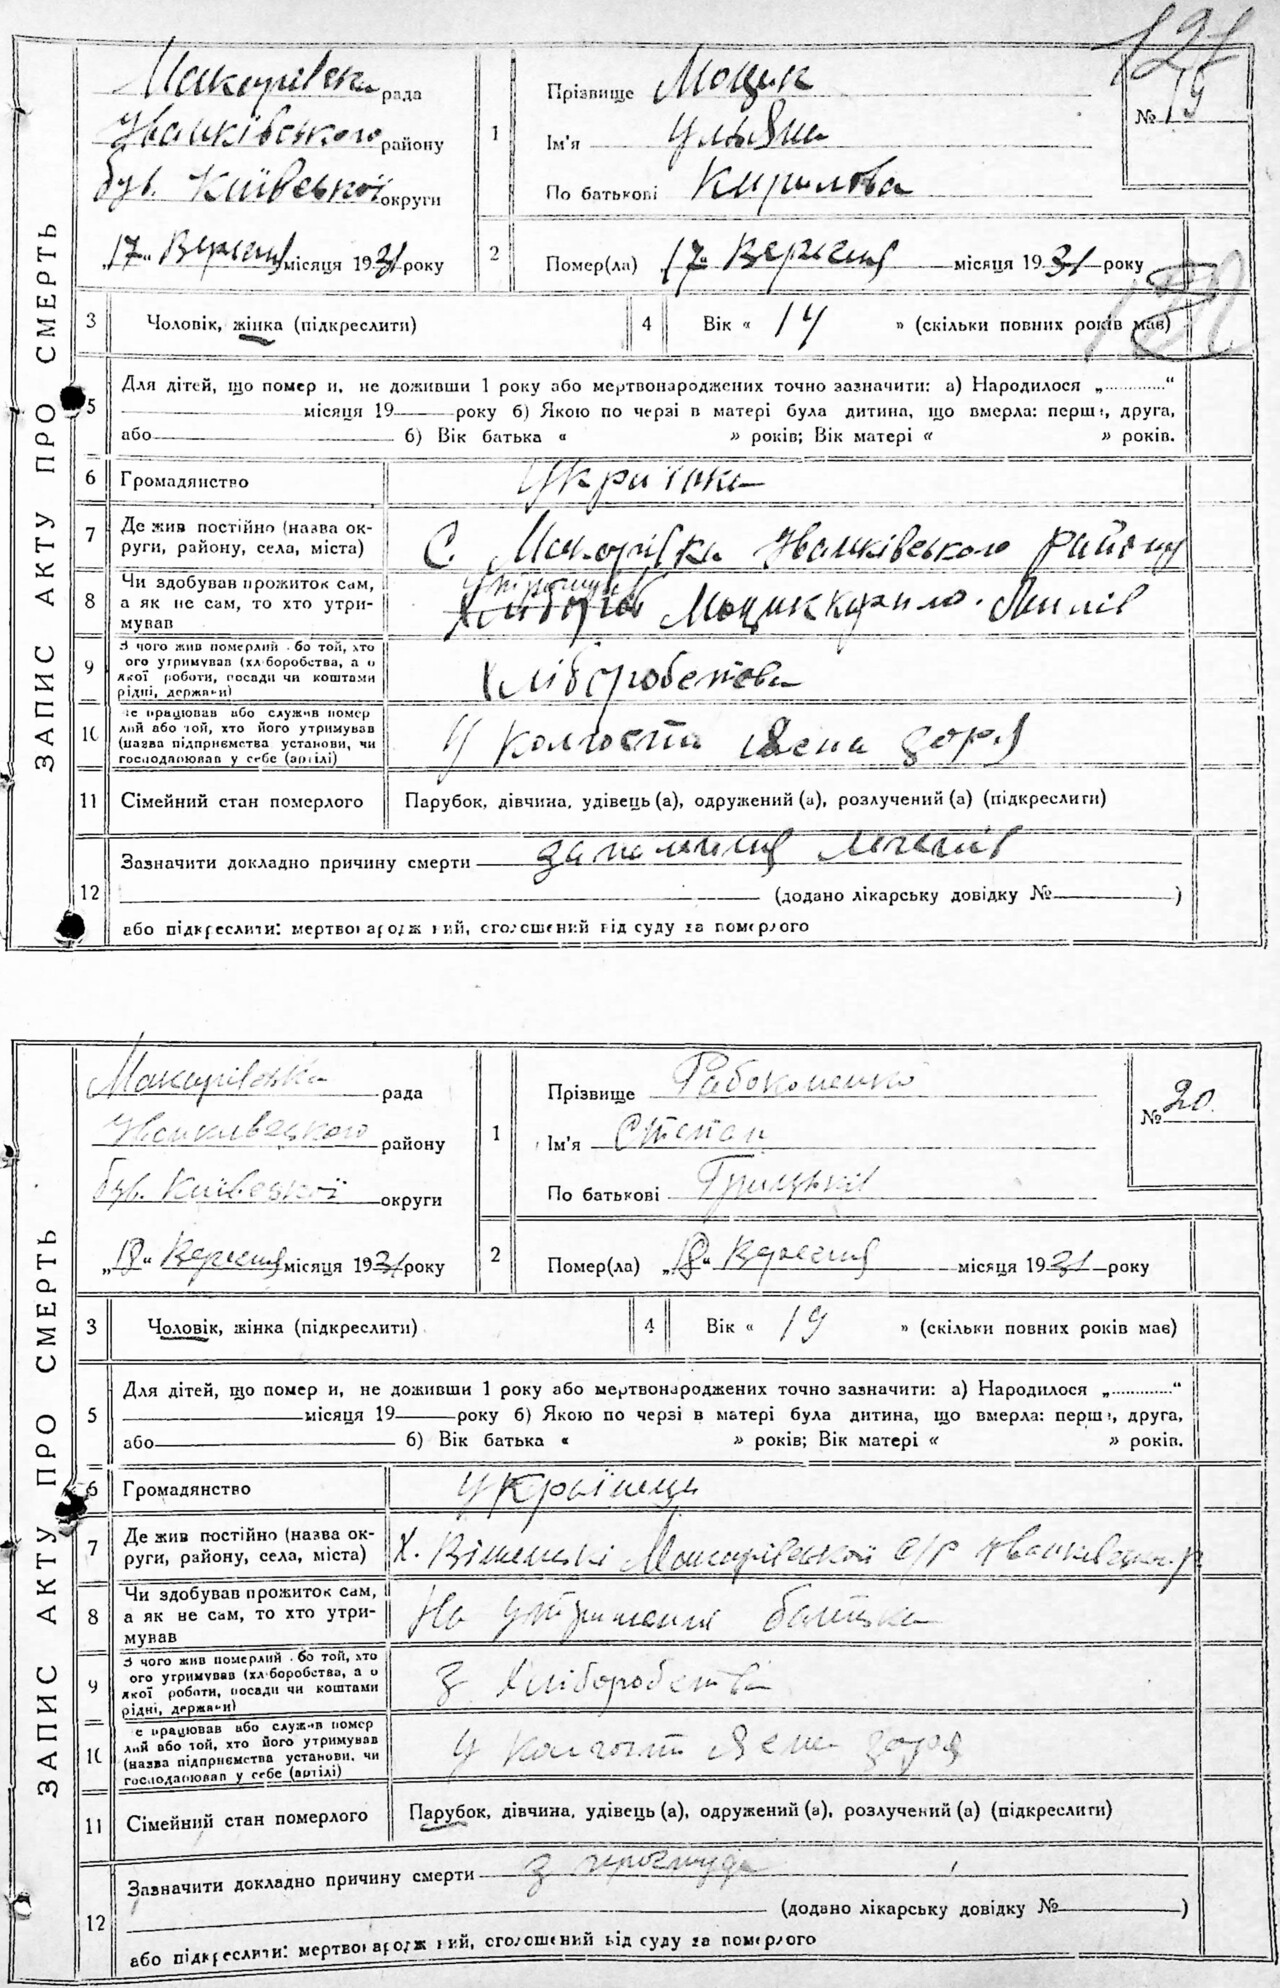 ЗАПИС АКТУ ПРО СМЕРТЬ
Макарівська рада
Іванківського району
був. Київської округи
„17“ Вересня місяця 1931 року
1 Прізвище Моцик
Ім'я Ульяна
По батькові Кирилова
№ 19
2 Помер(ла) „17“ Вересня місяця 1931 року
3 Чоловік, жінка (підкреслити)
4 Вік « 14 » (скільки повних років мав)
5 Для дітей, що помер и, не доживши 1 року або мертвонароджених точно зазначити: а) Народилося „.............“
місяця 19 року б) Якою по черзі в матері була дитина, що вмерла: перша, друга,
або б) Вік батька « » років; Вік матері « » років.
6 Громадянство Українка
7 Де жив постійно (назва ок-
руги, району, села, міста) С. Макарівка Іванківського району
8 Чи здобував прожиток сам,
а як не сам, то хто утри-
мував Моцик Кирило
9 З чого жив померлий або той, хто
його утримував (хліборобства, а о
якої роботи, посади чи коштами
рідні, держави) Хліборобства
10 Де працював або служив помер
лий або той, хто його утримував
(назва підприємства установи, чи
господарював у себе (артілі) У колгоспі Ясна зоря
11 Сімейний стан померлого Парубок, дівчина, удівець (а), одружений (а), розлучений (а) (підкреслити)
12 Зазначити докладно причину смерти запалення легенів
(додано лікарську довідку № )
або підкреслити: мертвонароджений, оголошений від суду за померлого
ЗАПИС АКТУ ПРО СМЕРТЬ
Макарівська рада
Іванківського району
був. Київської округи
„18“ Вересня місяця 1931 року
1 Прізвище Рабоконенко
Ім'я Степан
По батькові Грицьків
№ 20
2 Помер(ла) „18“ Вересня місяця 1931 року
3 Чоловік, жінка (підкреслити)
4 Вік « 19 » (скільки повних років мав)
5 Для дітей, що помер и, не доживши 1 року або мертвонароджених точно зазначити: а) Народилося „.............“
місяця 19 року б) Якою по черзі в матері була дитина, що вмерла: перша, друга,
або б) Вік батька « » років; Вік матері « » років.
6 Громадянство Українець
7 Де жив постійно (назва ок-
руги, району, села, міста) Х. Макарівської с/р Іванківського р
8 Чи здобував прожиток сам,
а як не сам, то хто утри-
мував На утриманні батька
9 З чого жив померлий або той, хто
його утримував (хліборобства, а о
якої роботи, посади чи коштами
рідні, держави) З Хліборобства
10 Де працював або служив помер
лий або той, хто його утримував
(назва підприємства установи, чи
господарював у себе (артілі) У колгоспі Ясна зоря
11 Сімейний стан померлого Парубок, дівчина, удівець (а), одружений (а), розлучений (а) (підкреслити)
12 Зазначити докладно причину смерти з простуди
(додано лікарську довідку № )
або підкреслити: мертвонароджений, оголошений від суду за померлого